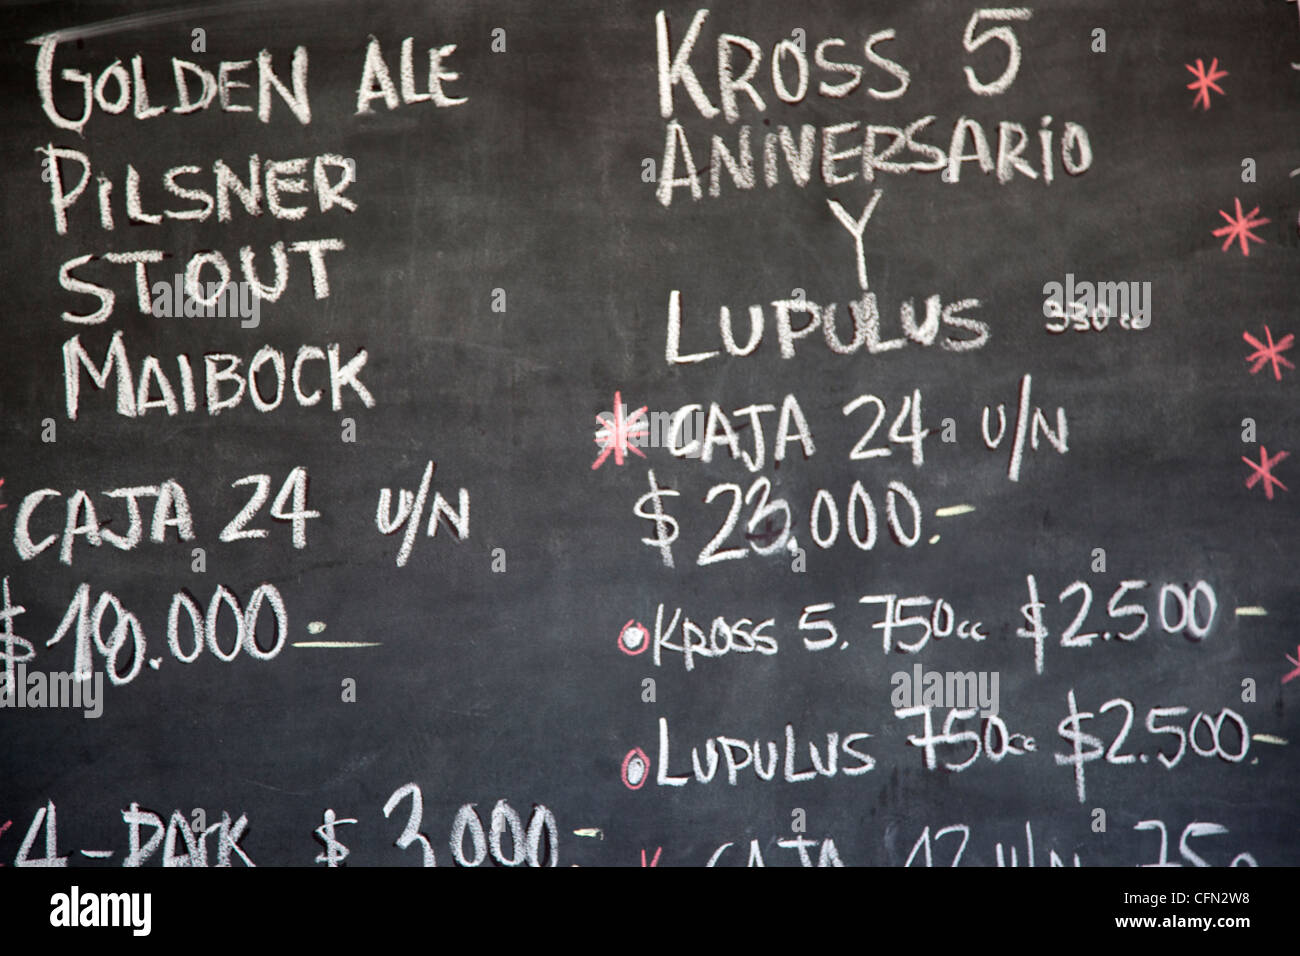 GOLDEN ALE
PILSNER
STOUT
MAIBOCK
CAJA 24 U/N
$18.000.-
4-PACK $3.000-
KROSS 5
ANIVERSARIO
Y
LUPULUS 330cc
* CAJA 24 U/N
$23.000.-
KROSS 5. 750cc $2.500-
LUPULUS 750cc $2.500.-
CAJA 12 U/N 75
a alamy stock photo
alamy
Image ID: CFN2W8
www.alamy.com